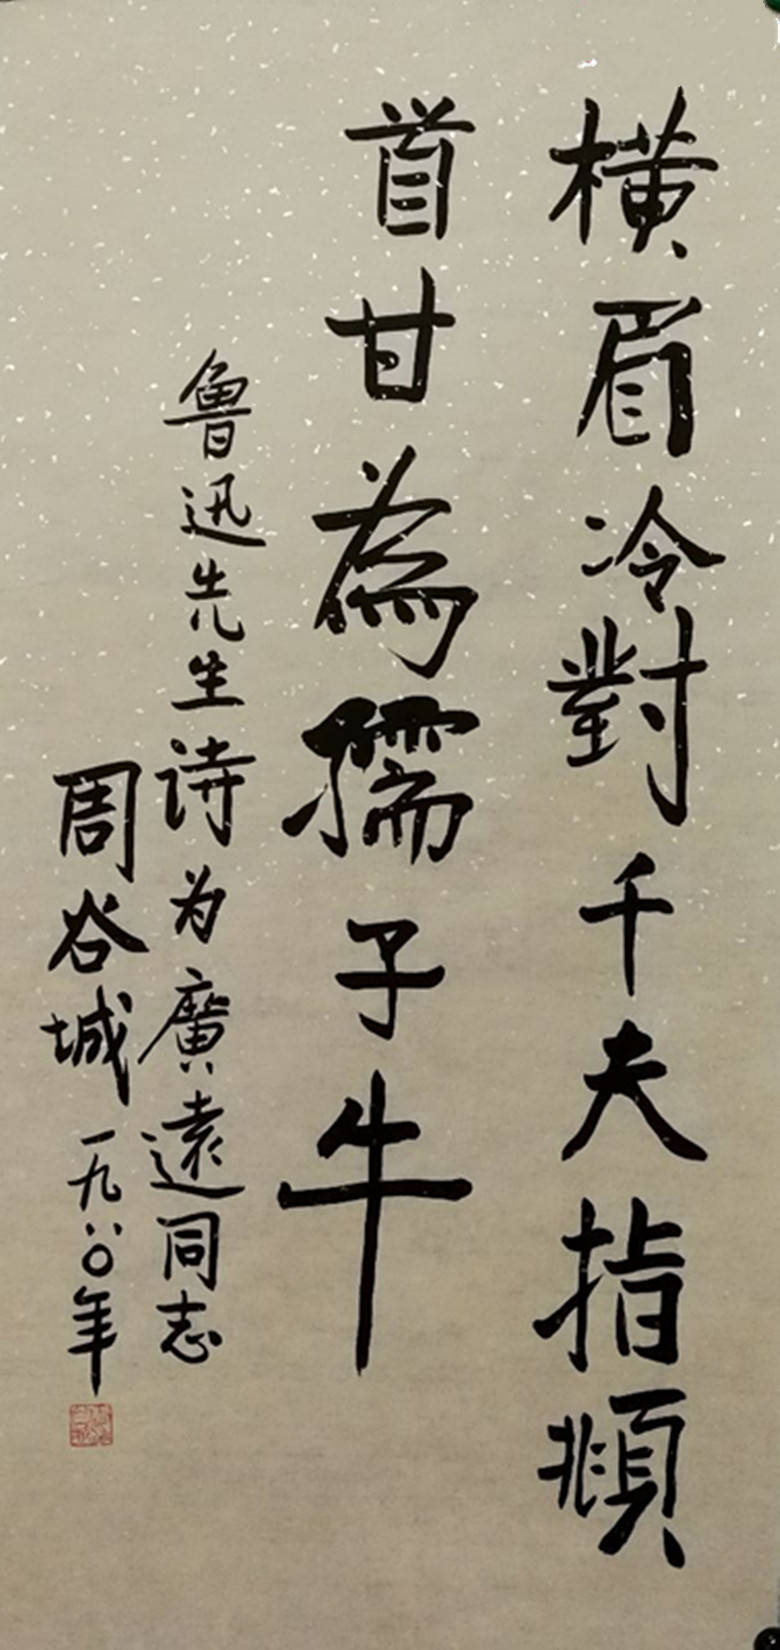 橫眉冷對千夫指頫
首甘為孺子牛
魯迅先生诗为廣遠同志
周谷城一九八〇年